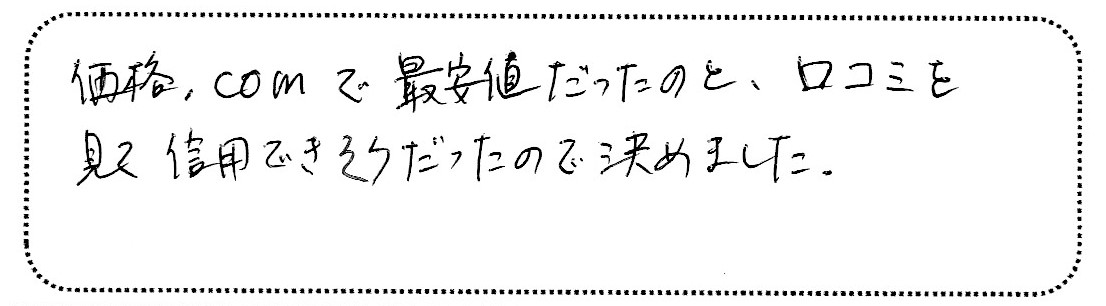 価格.comで最安値だったのと、口コミを
見て信用できそうだったので決めました。